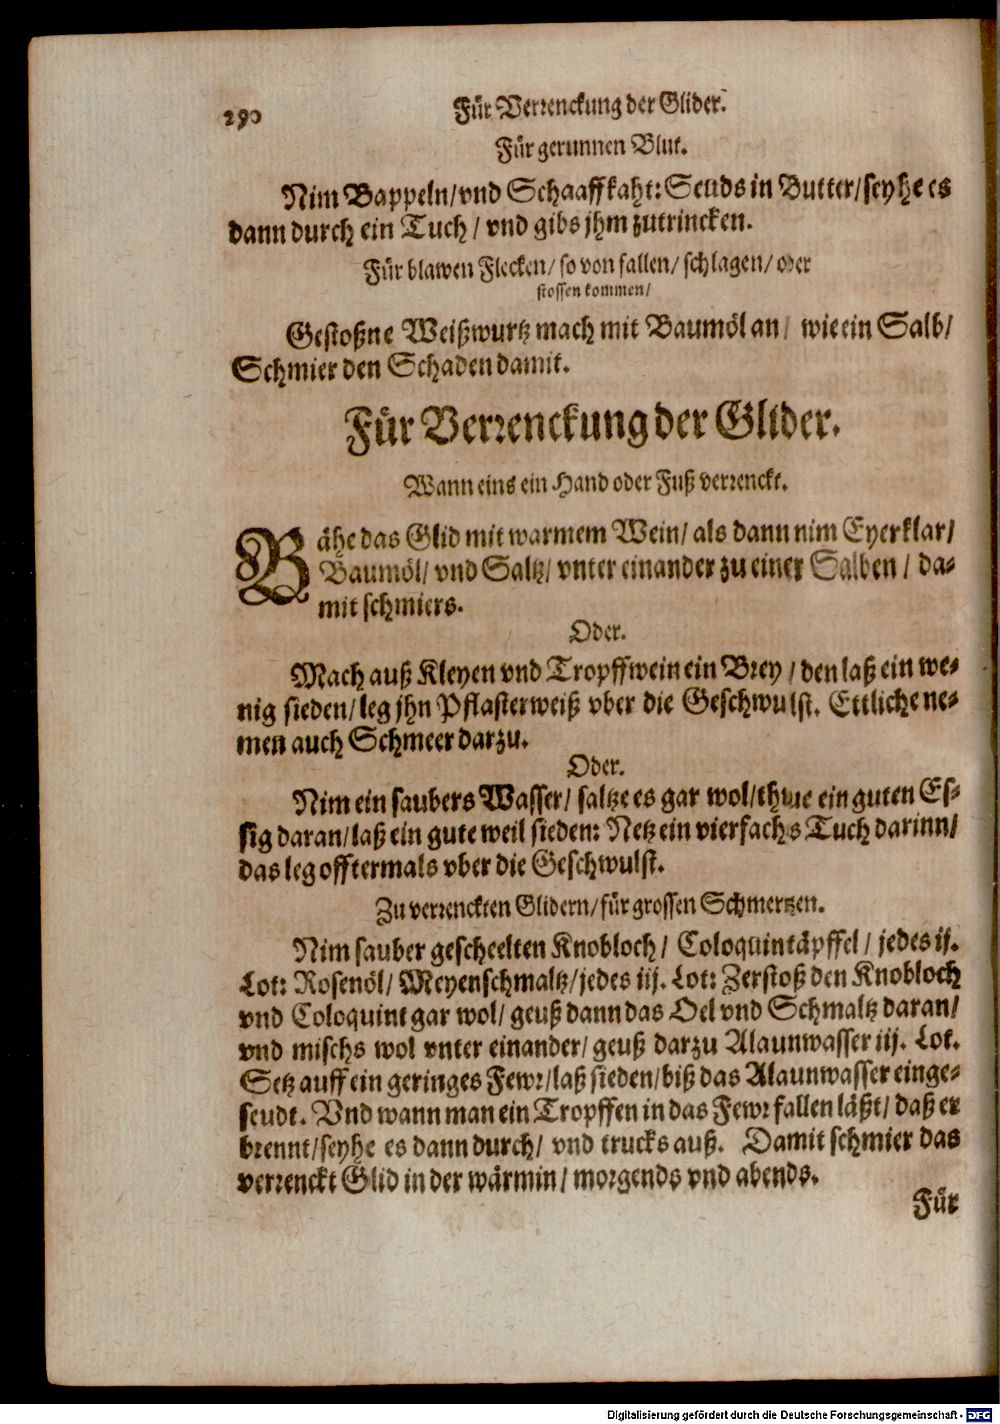 290 Für Verrenckung der Glider.
Für gerunnen Blut.
Nim Bappeln/vnd Schaaffkaht: Seuds in Butter/seyhe es
dann durch ein Tuch/ vnd gibs jhm zutrincken.
Für blawen Flecken/ so von fallen/ schlagen/ oder
stossen kommen/
Gestoßne Weißwurtz mach mit Baumöl an/ wie ein Salb/
Schmier den Schaden damit.
Für Verrenckung der Glider.
Wann eins ein Hand oder Fuß verrenckt.
Bähe das Glid mit warmem Wein/ als dann nim Eyerklar/
Baumöl/ vnd Saltz/ vnter einander zu einer Salben/ da-
mit schmiers.
Oder.
Mach auß Kleyen vnd Tropffwein ein Brey/ den laß ein we-
nig sieden/ leg jhn Pflasterweiß vber die Geschwulst. Ettliche ne-
men auch Schmeer darzu.
Oder.
Nim ein saubers Wasser/ saltze es gar wol/thue ein guten Es-
sig daran/laß ein gute weil sieden: Netz ein vierfachs Tuch darinn/
das leg offtermals vber die Geschwulst.
Zu verrenckten Glidern/für grossen Schmertzen.
Nim sauber gescheelten Knobloch/ Coloquintäpffel/ jedes ij.
Lot: Rosenöl/ Meyenschmaltz/jedes iij. Lot: Zerstoß den Knobloch
vnd Coloquint gar wol/ geuß dann das Oel vnd Schmaltz daran/
vnd mischs wol vnter einander/ geuß darzu Alaunwasser iij. Lot.
Setz auff ein geringes Fewr/laß sieden/biß das Alaunwasser einge-
seudt. Vnd wann man ein Tropffen in das Fewr fallen läßt/ daß er
brennt/seyhe es dann durch/ vnd trucks auß. Damit schmier das
verrenckt Glid in der wärmin/ morgends vnd abends.
Für
Digitalisierung gefördert durch die Deutsche Forschungsgemeinschaft - DFG